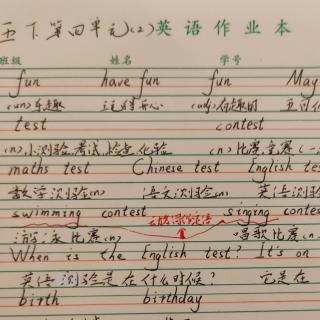 五下第四单元(2)英语作业本
班级 姓名 学号
fun have fun fun May
(un)乐趣 玩得开心 (adj)有趣的 五月
test contest
(n)小测验,考试,检查,化验 (n)比赛,竞赛
maths test Chinese test English te
数学测验(n) 语文测验(n) 英语测验
swimming contest singing contes
游泳比赛(n) 唱歌比赛(n
When is the English test? It's on
英语测验是在什么时候? 它是在
birth birthday